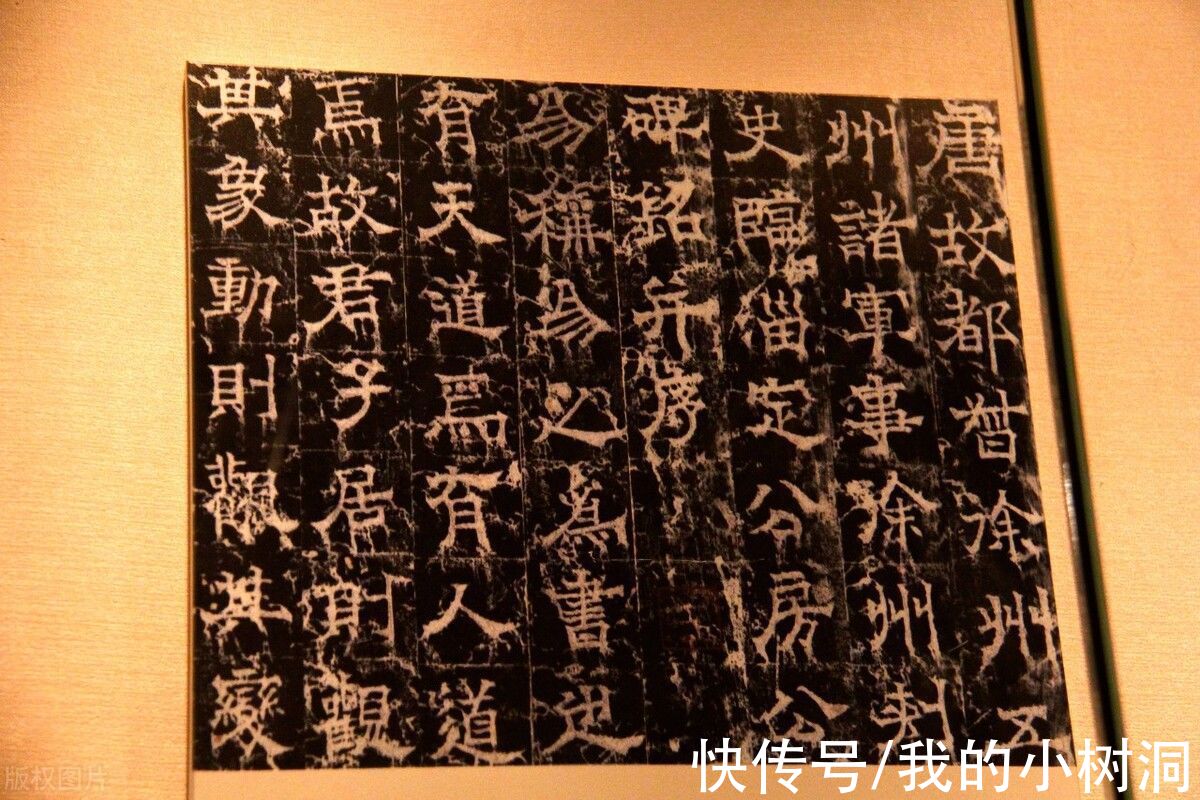 唐故都督徐州五
州諸軍事徐州刺
史臨淄定公房公
碑銘并序
易稱易之為書也
有天道焉有人道
焉故君子居則觀
其象動則觀其變
版权图片
快传号/我的小树洞